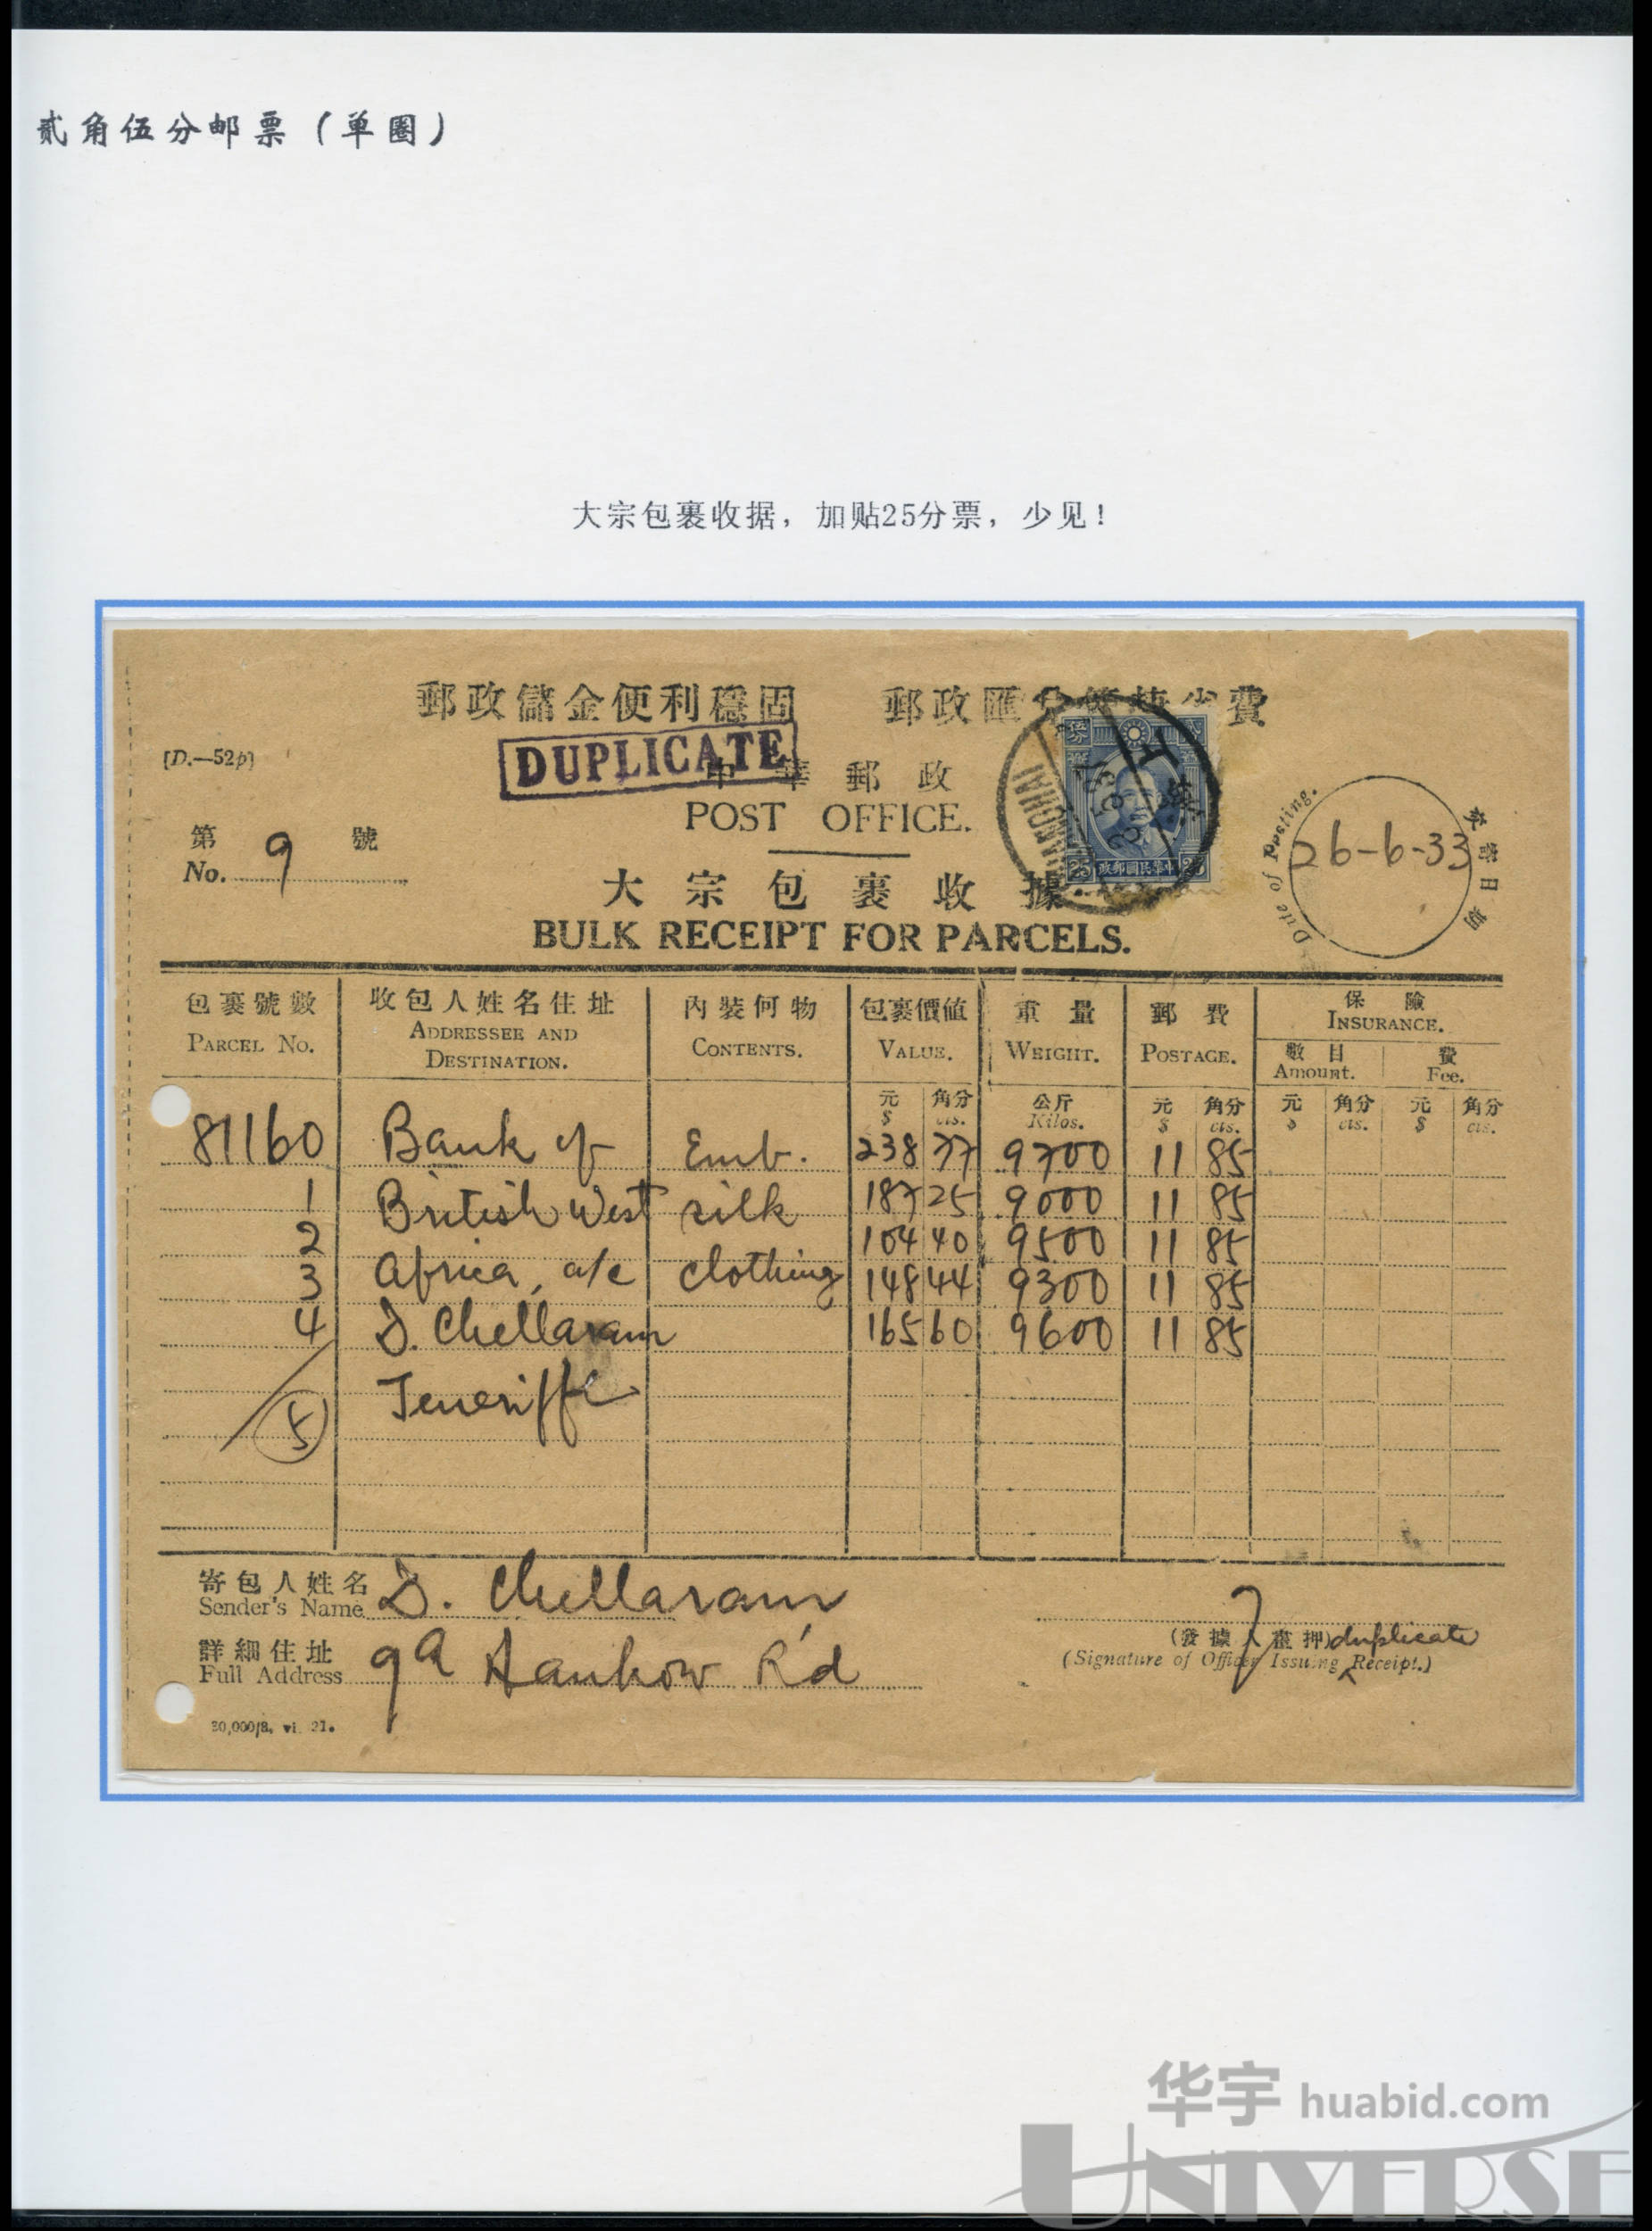 贰角伍分邮票（单圈）
大宗包裹收据，加贴25分票，少见！
郵政儲金便利穩固 郵政匯 費
[D.—52p]
DUPLICATE
中華郵政
POST OFFICE.
第 9 號
No.
SHANGHAI
上
25 政郵國民華中 25
Date of Posting.
26-6-33
交寄日期
大宗包裹收據
BULK RECEIPT FOR PARCELS.
包裹號數 收包人姓名住址 內裝何物 包裹價值 重量 郵費 保險
PARCEL NO. ADDRESSEE AND DESTINATION. CONTENTS. VALUE. WEIGHT. POSTAGE. INSURANCE.
數目 費
Amount. Fee.
元 角分 公斤 元 角分 元 角分 元 角分
$ cts. Kilos. $ cts. $ cts. $ cts.
81160 Bank of Emb. 238 77 9700 11 85
1 British West silk 187 25 9000 11 85
2 104 40 9500 11 85
3 Africa, a/c clothing 148 44 9300 11 85
4 D. Chellaram 165 60 9600 11 85
Teneriffe
5
寄包人姓名
Sender's Name D. Chellaram
詳細住址
Full Address 9a Hankow Rd
(發據人畫押) duplicate
(Signature of Officer Issuing Receipt.)
華宇 huabid.com
UNIVERSE